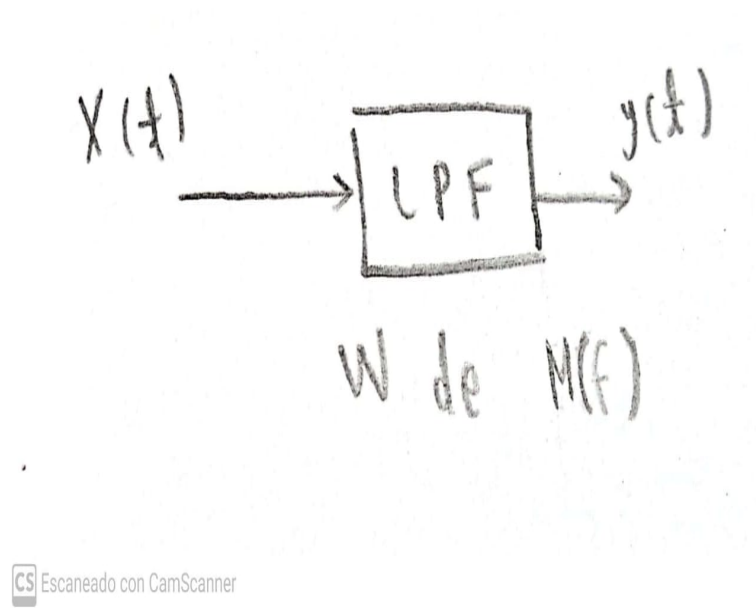 X(t)
y(t)
LPF
W de M(f)
CS Escaneado con CamScanner